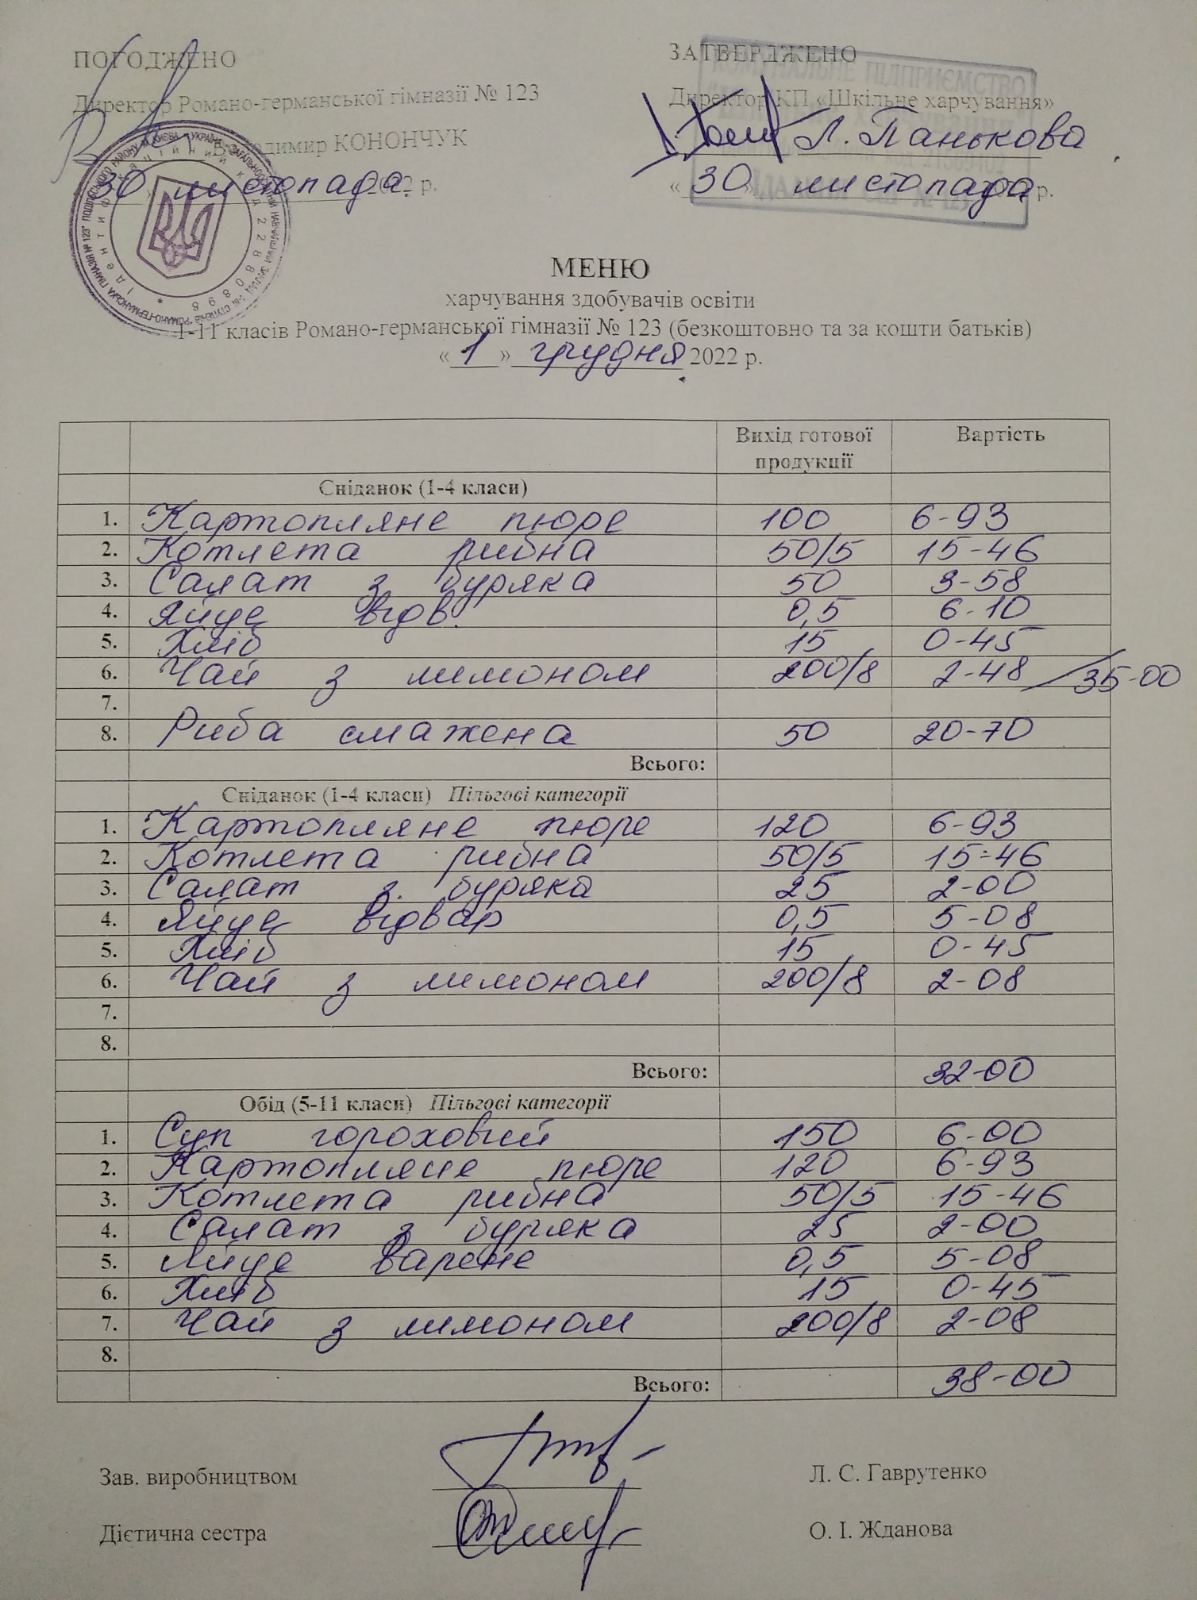 ПОГОДЖЕНО
Директор Романо-германської гімназії № 123
Володимир КОНОНЧУК
30 листопада 2022 р.
ЗАТВЕРДЖЕНО
Директор КП «Шкільне харчування»
Л. Панькова
«30» листопада р.
КОМУНАЛЬНЕ ПІДПРИЄМСТВО
МЕНЮ
харчування здобувачів освіти
1-11 класів Романо-германської гімназії № 123 (безкоштовно та за кошти батьків)
«1» грудня 2022 р.
Вихід готової продукції Вартість
Сніданок (1-4 класи)
1. Картопляне пюре 100 6-93
2. Котлета рибна 50/5 15-46
3. Салат з буряка 50 3-58
4. Яйце відв. 0,5 6-10
5. Хліб 15 0-45
6. Чай з лимоном 200/8 2-48 /35-00
7.
8. Риба смажена 50 20-70
Всього:
Сніданок (1-4 класи) Пільгові категорії
1. Картопляне пюре 120 6-93
2. Котлета рибна 50/5 15-46
3. Салат з буряка 25 2-00
4. Яйце відвар 0,5 5-08
5. Хліб 15 0-45
6. Чай з лимоном 200/8 2-08
7.
8.
Всього: 32-00
Обід (5-11 класи) Пільгові категорії
1. Суп гороховый 150 6-00
2. Картопляне пюре 120 6-93
3. Котлета рибна 50/5 15-46
4. Салат з буряка 25 2-00
5. Яйце варене 0,5 5-08
6. Хліб 15 0-45
7. Чай з лимоном 200/8 2-08
8.
Всього: 38-00
Зав. виробництвом Л. С. Гаврутенко
Дієтична сестра О. І. Жданова